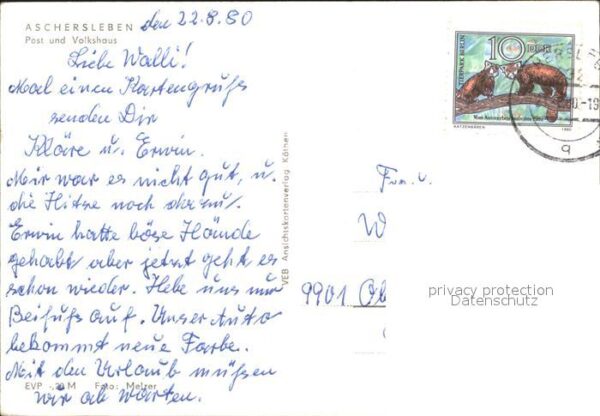 ASCHERSLEBEN
Post und Volkshaus
den 22.8.80
Liebe Walli!
Mal einen Kartengruß
senden Dir
Kläre u. Erwin.
Mir war es nicht gut, u.
die Hitze noch dazu.
Erwin hatte böse Hände
gehabt aber jetzt geht es
schon wieder. Hebe uns nur
Beifuß auf. Unser Auto
bekommt neue Farbe.
Mit den Urlaub müssen
wir ab warten.
EVP -,20 M Foto: Melzer
VEB Ansichtskartenverlag Köthen
TIERPARK BERLIN
10 DDR
KATZENBÄREN
1980
Fam. u.
W
9901 Ob
privacy protection
Datenschutz